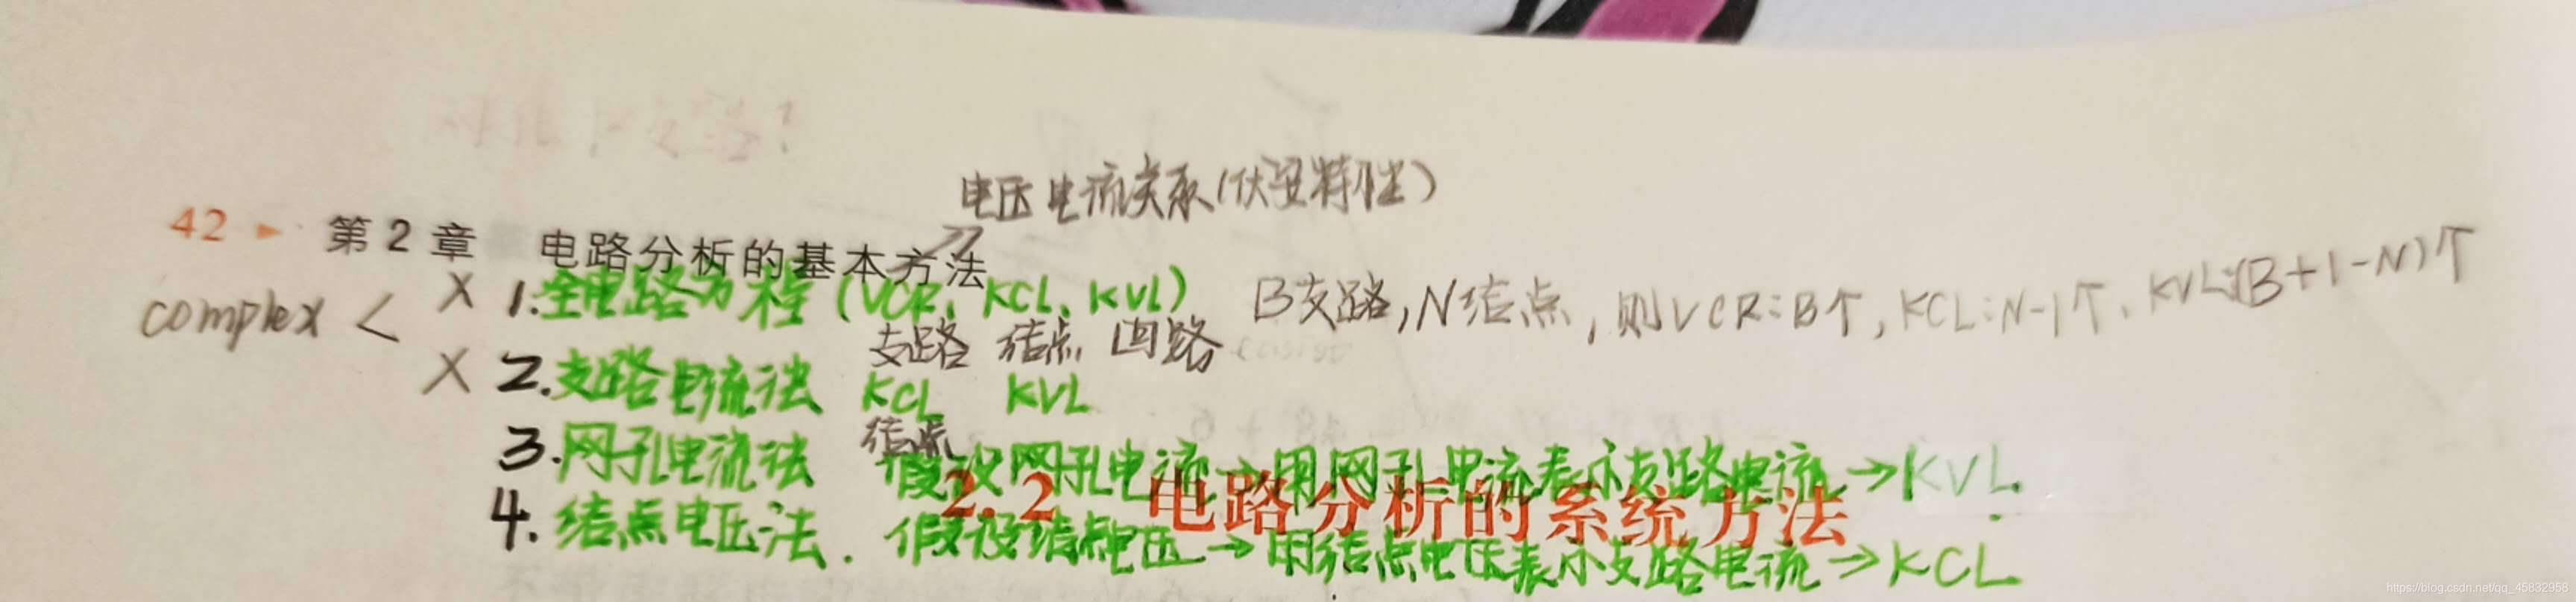 电压电流关系(伏安特性)
42 ► 第2章 电路分析的基本方法
complex <
X 1.全电路方程(VCR, KCL, KVL) B支路,N结点,则VCR:B个,KCL:N-1个,KVL:(B+1-N)个
支路 结点 回路
X 2.支路电流法 KCL KVL
结点
3.网孔电流法 假设网孔电流→用网孔电流表示支路电流→KVL.
2.2 电路分析的系统方法
4.结点电压法. 假设结点电压→用结点电压表示支路电流→KCL
https://blog.csdn.net/qq_45832958